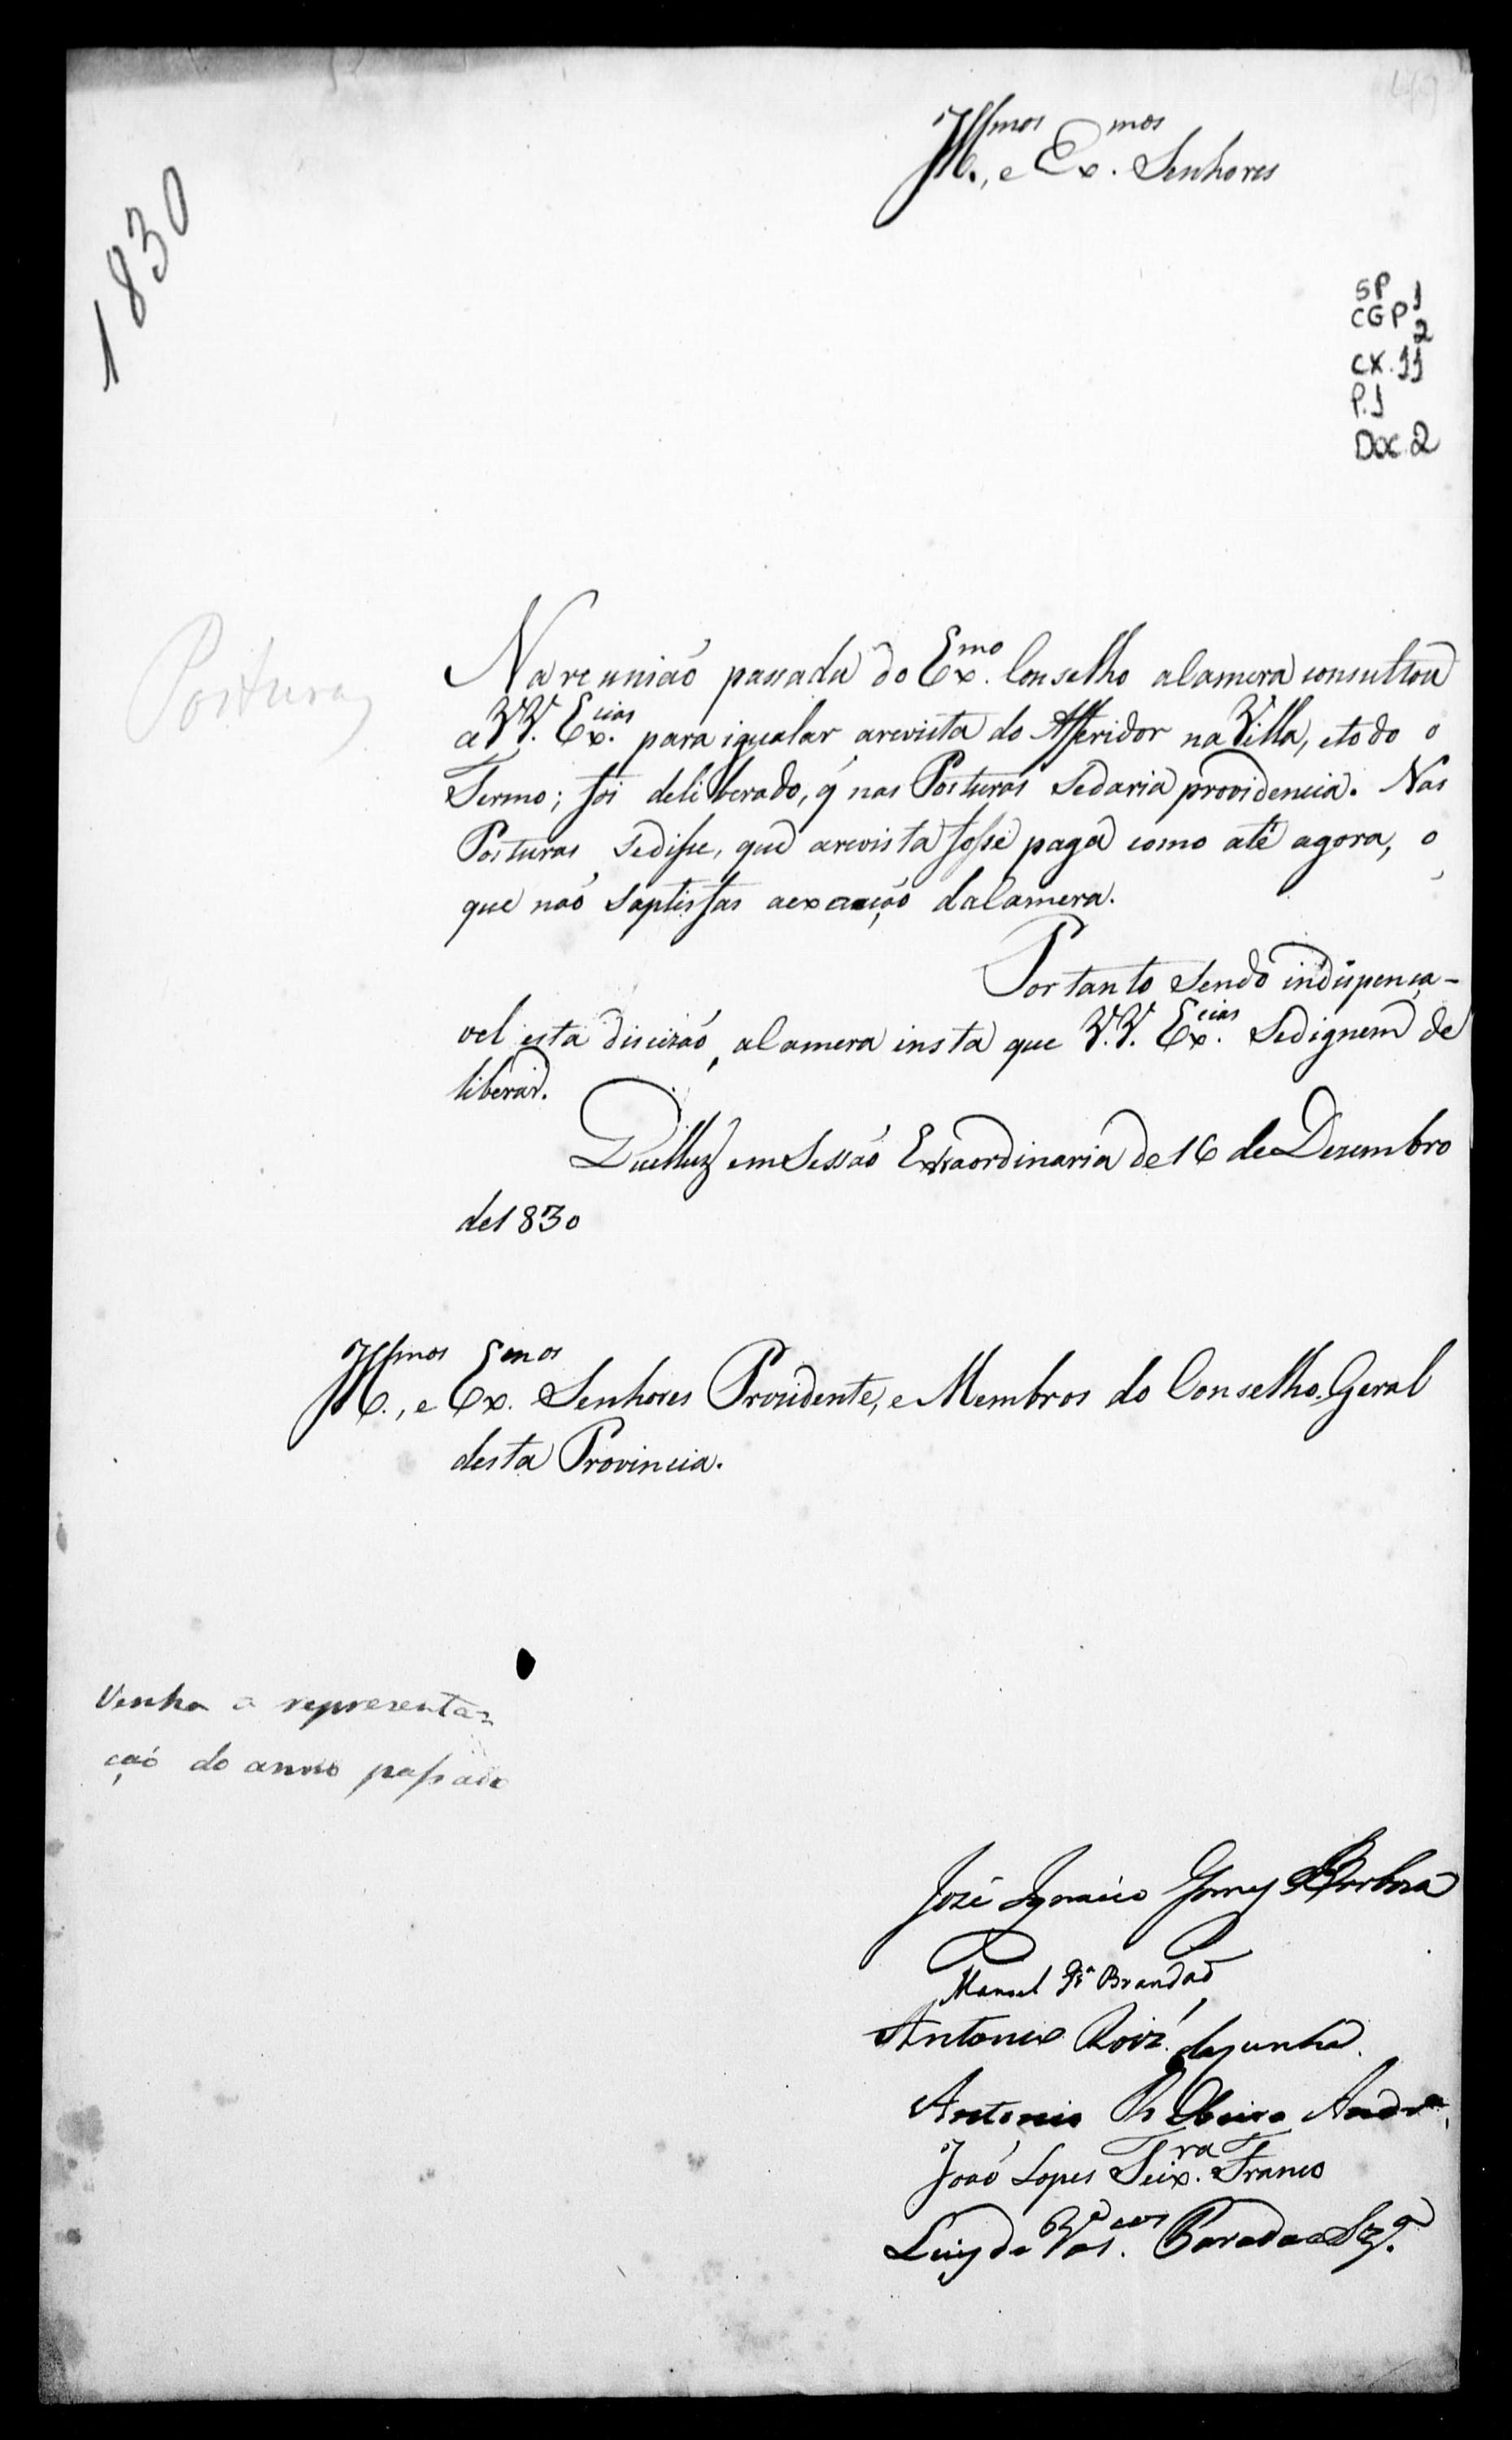 Ill.mos, e Ex.mos Senhores
1830
SP 1
CGP 2
CX. 11
P. 1
DOC. 2
Posturas
Na reunião passada do Ex.mo Conselho aCamera consultou
a VV. Ex.cias para igualar arevista do Afferidor na Villa, etodo o
Termo; foi deliberado, q' nas Posturas sedaria providencia. Nas
Posturas sedisse, que arevista fosse paga como até agora, o
que não saptisfas aexacção daCamera.
Portanto sendo indispença-
vel esta discizão, aCamera insta que V.V. Ex.cias sedignem de
liberar.
Quelluz em Sessão Extraordinaria de 16 de Dezembro
de 1830
Ill.mos, e Ex.mos Senhores Prezidente, e Membros do Conselho Geral
desta Provincia.
Venha a representa=
ção do anno passado
José Ignacio Gomes Barbosa
Manoel Brandão
Antonio Roiz' daCunha.
Antonio Andr.e
João Lopes Teix.ra Franco
Luiz de Vas.cos Parada e Sz.a